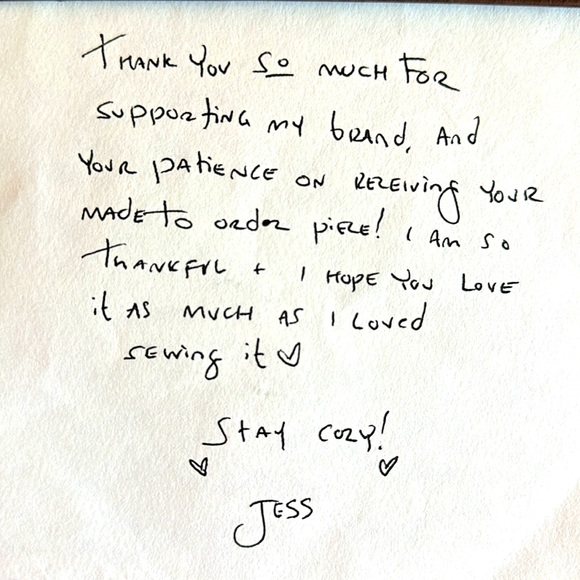 Thank you so much for
supporting my brand, and
your patience on receiving your
made to order piece! I am so
thankful + I hope you love
it as much as I loved
sewing it ♡
Stay cozy!
♡ ♡
Jess